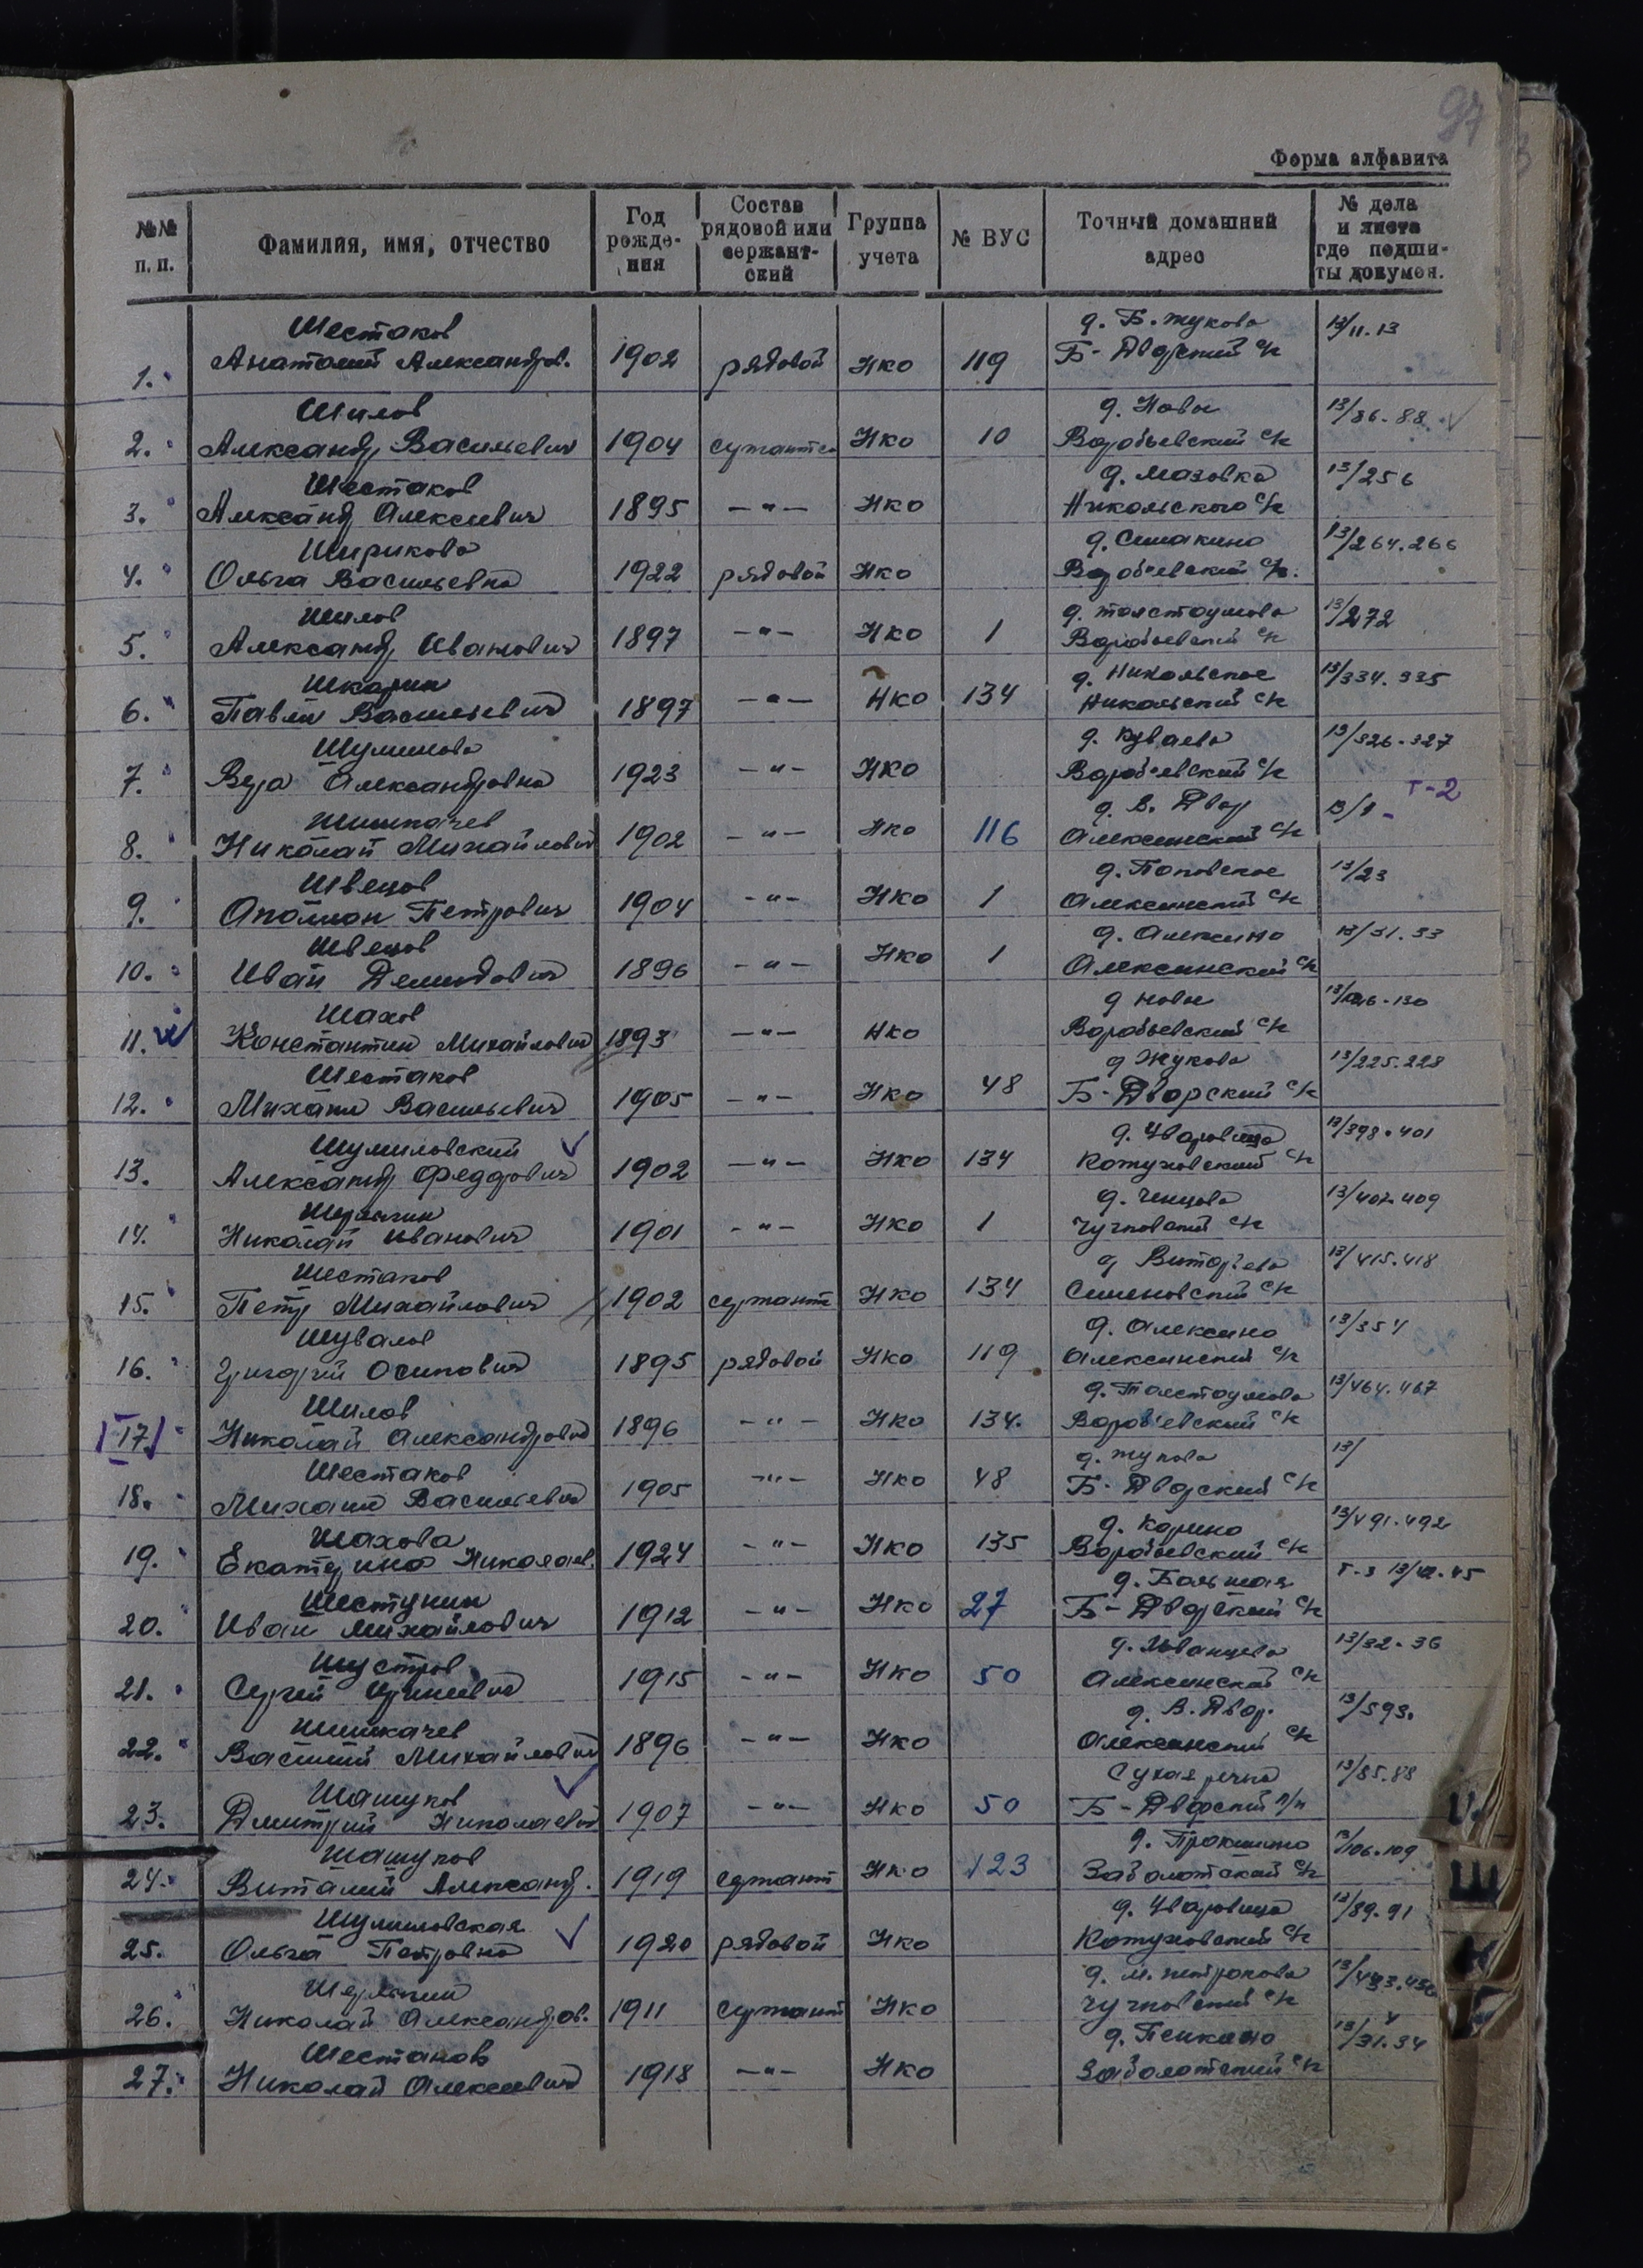 97
Форма алфавита
№№ п. п. Фамилия, имя, отчество Год рожде-ния Состав рядовой или сержант-ский Группа учета № ВУС Точный домашний адрес № дела и листа где подши-ты докумен.
Шестаков д. Б. Жукова 13/11.13
1. Анатолий Александров. 1902 рядовой НКО 119 Б-Дворский с/с
Шилов д. Новое 13/86-88
2. Александр Васильевич 1904 НКО 10 Воробьевский с/с
Шестаков д. Мазовка 13/256
3. Александр Алексеевич 1895 -"- НКО Никольского с/с
Ширикова д. Симакино 13/264.266
4. Ольга Васильевна 1922 рядовой НКО Воробьевский с/с.
Шилов д. Толстоумова 13/272
5. Александр Иванович 1897 -"- НКО 1 Воробьевский с/с
Шкарин д. Никольское 13/334.335
6. Павел Васильевич 1897 -"- НКО 134 Никольский с/с
Шумилова д. Куваева 13/326-327
7. Вера Александровна 1923 -"- НКО Воробьевский с/с т-2
Шишкачев д. В. Двор 13/8-
8. Николай Михайлович 1902 -"- НКО 116 Алексинский с/с
Швецов д. Поповское 13/23
9. Аполлон Петрович 1904 -"- НКО 1 Алексинский с/с
Швецов д. Алексино 13/31.33
10. Иван Демидович 1896 -"- НКО 1 Алексинский с/с
Шахов д Новое
11. Константин Михайлович 1893 -"- НКО Воробьевский с/с
Шестаков д Жукова 13/225.228
12. Михаил Васильевич 1905 -"- НКО 48 Б-Дворский с/с
Шумиловский д. Уваровица 13/398.401
13. Александр Федорович 1902 -"- НКО 134 Кожуховский с/с
Шерягин д. Ченцова 13/407-409
14. Николай Иванович 1901 -"- НКО 1 Чучковский с/с
Шестаков д 13/415.418
15. Петр Михайлович 1902 сержант НКО 134 Семеновский с/с
Шувалов д. Алексино 13/354
16. Григорий Осипович 1895 рядовой НКО 119 Алексинский с/с
Шилов д. Толстоумова 13/464.467
17. Николай Александрович 1896 -"- НКО 134. Воробьевский с/с
Шестаков д. Жукова 13/
18. Михаил Васильевич 1905 -"- НКО 48 Б-Дворский с/с
Шахова д. Корино 13/491.492
19. Екатерина Николаев. 1924 -"- НКО 135 Воробьевский с/с
Шестунин д. Большая т-3
20. Иван Михайлович 1912 -"- НКО 27 Б-Дворский с/с
Шустров д. Иванцева 13/32-36
21. Сергей 1915 -"- НКО 50 Алексинский с/с
Шишкачев д. В. Двор. 13/593.
22. Василий Михайлович 1896 -"- НКО Алексинский с/с
Шашуков Сухая речка 13/85.88
23. Дмитрий Николаевич 1907 -"- НКО 50 Б-Дворский п/п
Шашуков д. Прокшино 13/106.109
24. Виталий Александ. 1919 сержант НКО 123 Заболотский с/с
Шумиловская д. Уваровица 13/89.91
25. Ольга Петровна 1920 рядовой НКО Кожуховский с/с
Шерягин д. М. Петракова
26. Николай Александров. 1911 сержант НКО Чучковский с/с
Шестаков д. Пенкино 13/31.34
27. Николай Алексеевич 1918 -"- НКО Заболотский с/с
Ш